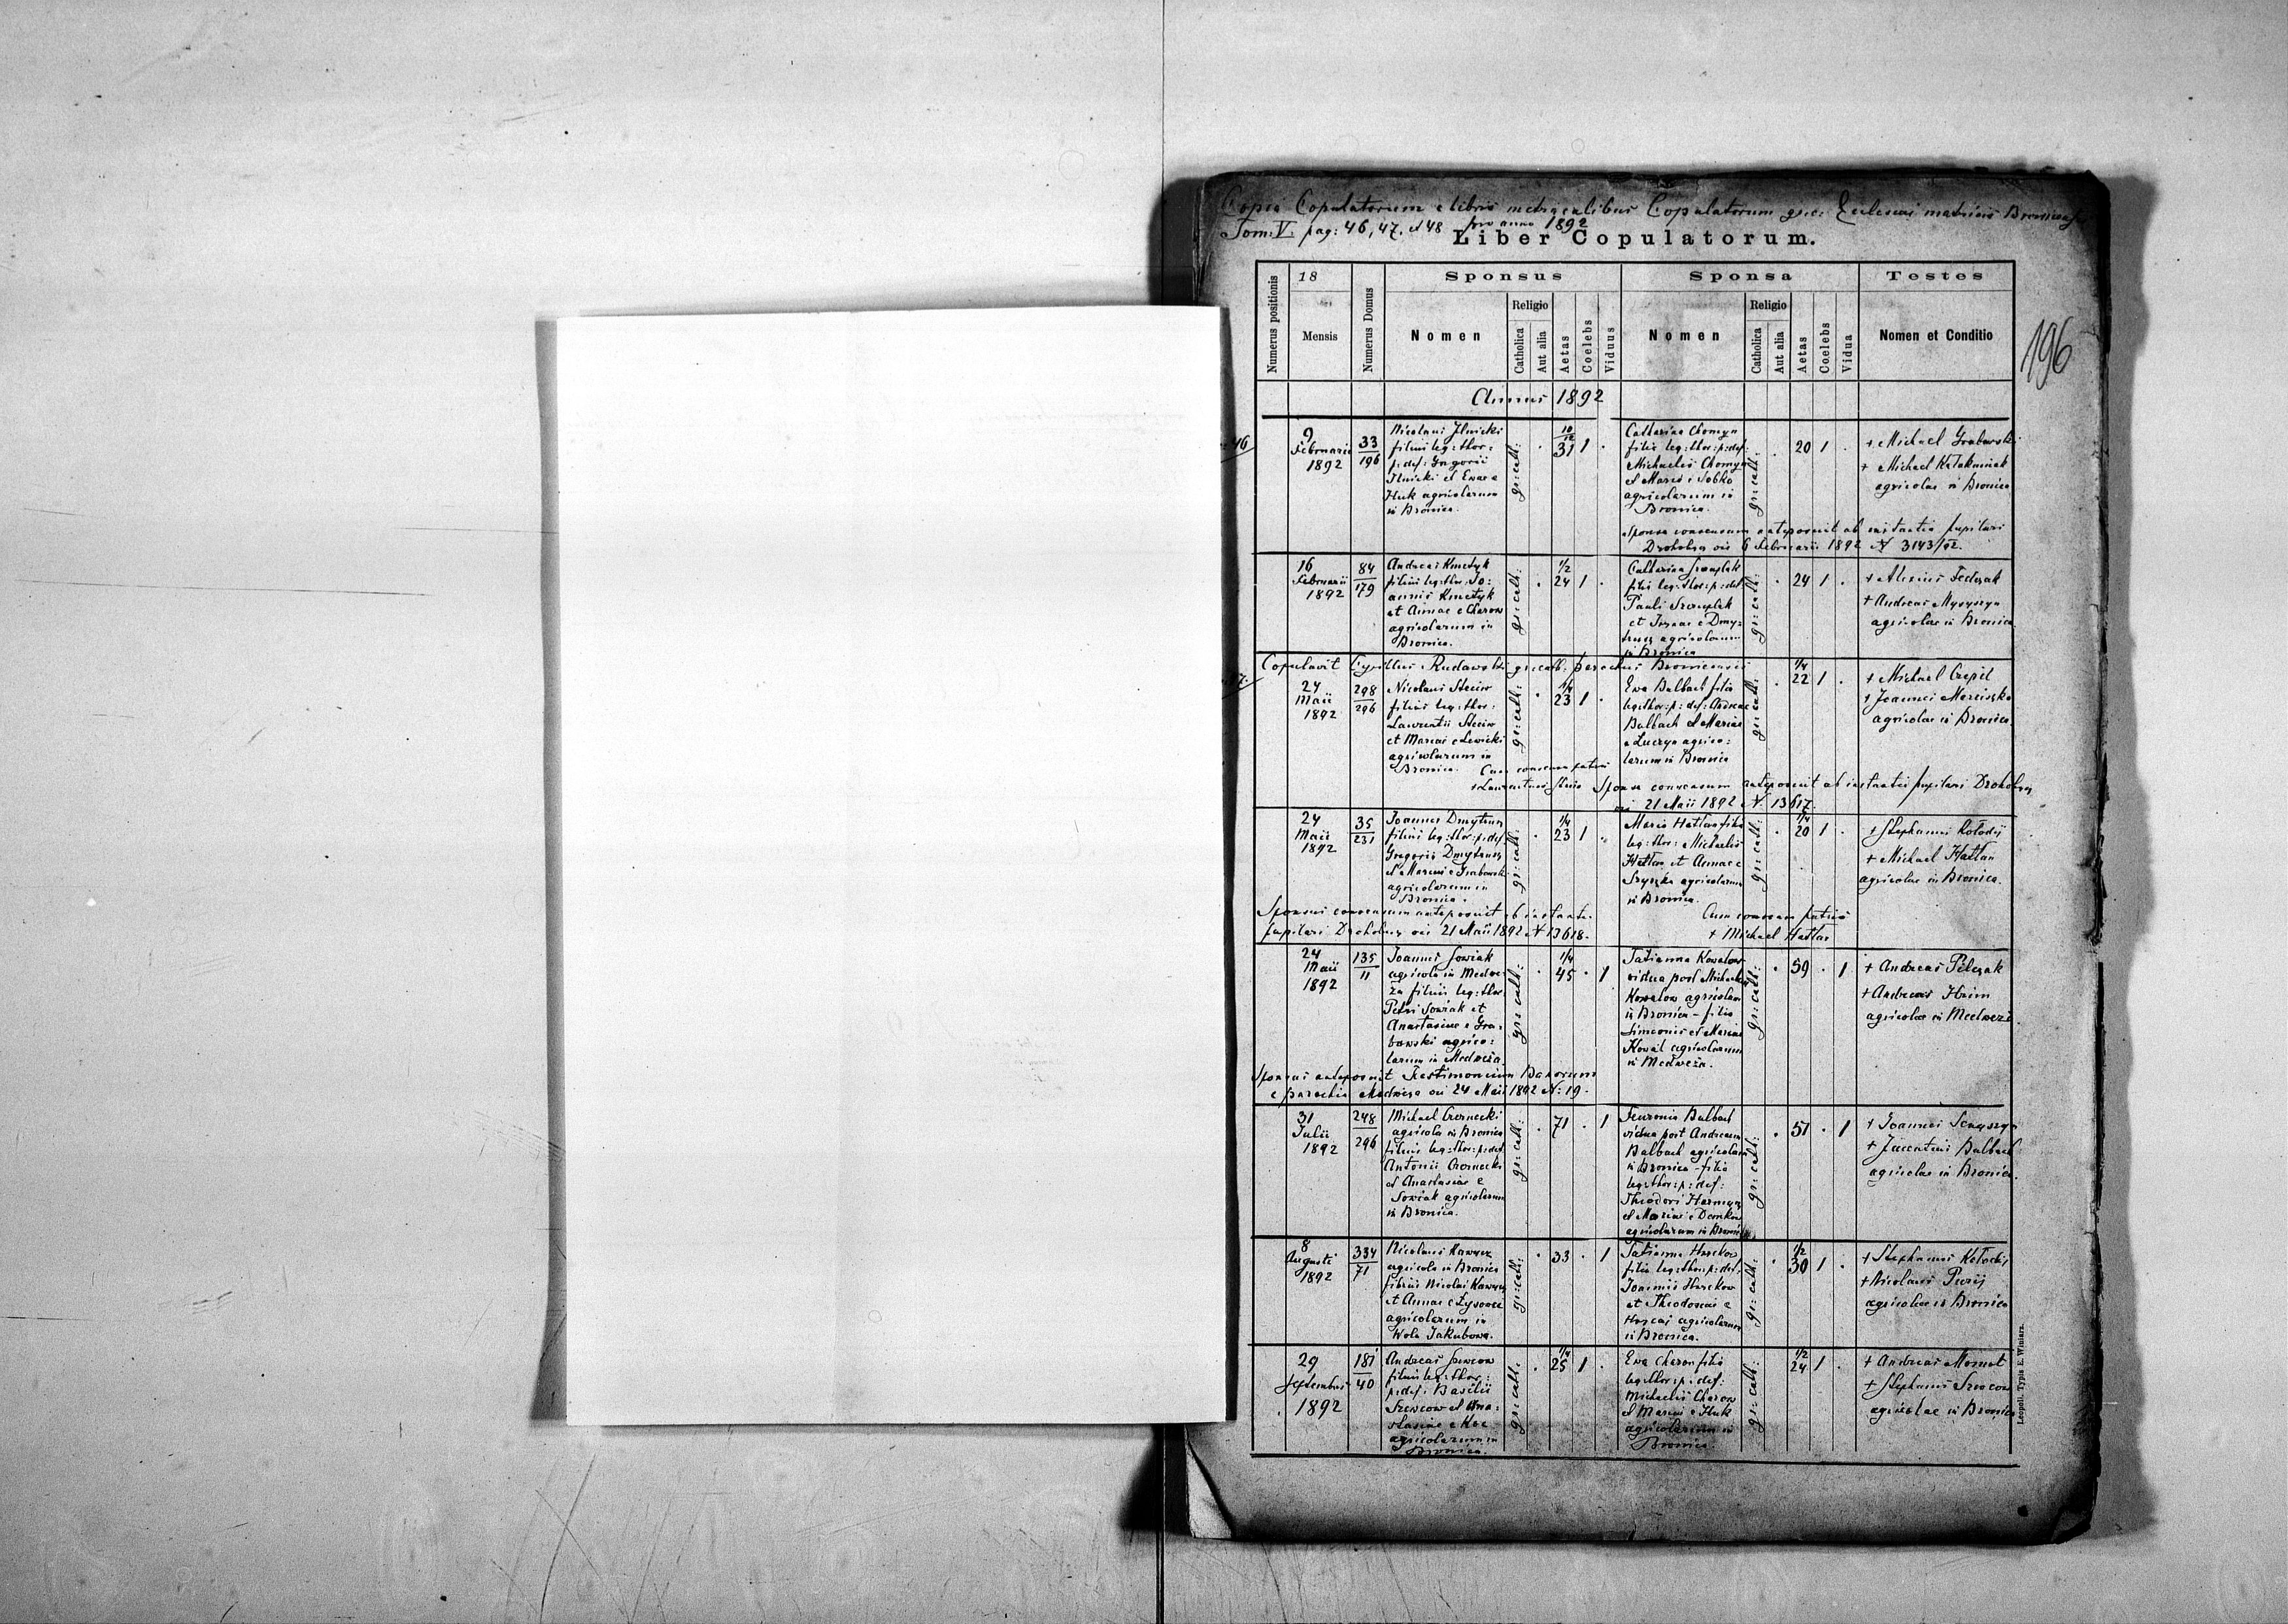 Copia Copulatorum e libris metricalibus Copulatorum gr. c. Ecclesiae matricis
Tom: V. pag: 46, 47, et 48 pro anno 1892
Liber Copulatorum.
196
Numerus positionis
18
Mensis
Numerus Domus
Sponsus
Nomen
Religio
Catholica
Aut alia
Aetas
Coelebs
Viduus
Sponsa
Nomen
Religio
Catholica
Aut alia
Aetas
Coelebs
Vidua
Testes
Nomen et Conditio
Annus 1892
46
9
Februarii
1892
33
196
Nicolaus Ilnicki
filius leg: thor:
p: def: Gregorii
Ilnicki et Evae e
Huk agricolarum
in Bronica.
gr: cath:
10/12
31
1
Catharina Chomyn
filia leg: thor: p: def:
Michaelis Chomyn
et Maria e Sobko
agricolarum in
Bronica.
gr: cath:
20
1
+ Michael Grabowski
+ Michael
agricolae in Bronica
Sponsa consensum anteposuit ab instantia pupilari
6 Februarii 1892 N 3143/92.
16
Februarii
1892
84
179
Andreas Kmetyk
filius leg: thor: Jo:
annis Kmetyk
et Annae e Charow
agricolarum in
Bronica.
gr: cath:
1/2
24
1
Catharina
filia leg: thor: p: def:
Pauli
et e Dmy:
trusz agricolarum
in Bronica
gr: cath:
24
1
+ Alexius Fedczak
+ Andreas
agricolae in Bronica
Copulavit Cyrillus Rudawski gr: cath: parochus Bronicensis
24
Maii
1892
298
296
Nicolaus Steciw
filius leg: thor:
Laurentii Steciw
et Mariae e Lewicki
agricolarum in
Bronica.
gr: cath:
1/4
23
1
Cum consensu patris
+ Laurentius Steciw
Eva Balbach filia
leg: thor: p: def: Andreae
Balbach et Mariae
e Luczyn agrico:
larum in Bronica
gr: cath:
1/4
22
1
+ Michael Czepil
+ Joannes
agricolae in Bronica
Sponsa consensum anteposuit ab instantia pupilari
21 Maii 1892 N. 13617.
24
Maii
1892
35
231
Joannes Dmytrusz
filius leg: thor: p: def:
Gregorii Dmytrusz
et Mariae e Grabowski
agricolarum in
Bronica.
gr: cath:
1/4
23
1
Maria Hatlas filia
leg: thor: Michaelis
Hatlas et Annae e
agricolarum
in Bronica.
gr: cath:
1/4
20
1
+ Stephanus Kołodij
+ Michael Hatlas
agricolae in Bronica.
Sponsus consensum anteposuit ab instantia
pupilari 21 Maii 1892 N 13618.
Cum consensu patris
+ Michael Hatlas
24
Maii
1892
135
11
Joannes Sowiak
agricola in Medwe:
ża filius leg: thor:
Petri Sowiak et
Anastasiae e Gra:
bowski agrico:
larum in Medweża
gr: cath:
1/4
45
1
Tatianna Kowalow
vidua post Michaele
Kowalow agricolam
in Bronica - filia
Simeonis et Mariae
Kowal agricolarum
in Medweża.
gr: cath:
59
1
+ Andreas Pelczak
+ Andreas
agricolae in Medweża.
Sponsus anteposuit Testimonium Bannorum
e parochia Medweża 24 Maii 1892 N: 19.
31
Julii
1892
248
296
Michael Czernecki
agricola in Bronica
filius leg: thor: p: def:
Antonii Czernecki
et Anastasiae e
Sowiak agricolarum
in Bronica.
gr: cath:
71
1
Feuronia Balbach
vidua post Andream
Balbach agricolam
in Bronica - filia
leg: thor: p: def:
Theodori
et Mariae e Demkow
agricolarum in Bronica
gr: cath:
51
1
+ Joannes
+ Balbach
agricolae in Bronica.
8
Augusti
1892
334
71
Nicolaus Kawycz
agricola in Bronica
filius Nicolai Kawycz
et Annae e Łysowei
agricolarum in
Wola Jakubowa.
gr: cath:
33
1
Tatianna
filia leg: thor: p: def:
Joannis
et Theodosiae e
agricolarum
in Bronica.
gr: cath:
1/2
30
1
+ Stephanus Kołodij
+ Nicolaus
agricolae in Bronica
29
Septembris
1892
181
40
Andreas Szewcow
filius leg: thor:
p: def: Basilii
Szewcow et Ana:
stasiae e
agricolarum in
Bronica.
gr: cath:
1/4
25
1
Eva Charow filia
leg: thor: p: def:
Michaelis Charow
et Mariae e Huk
agricolarum in
Bronica.
gr: cath:
1/2
24
1
+ Andreas Momot
+ Stephanus Szewcow
agricolae in Bronica
Leopoli. Typis E. Winiarz.